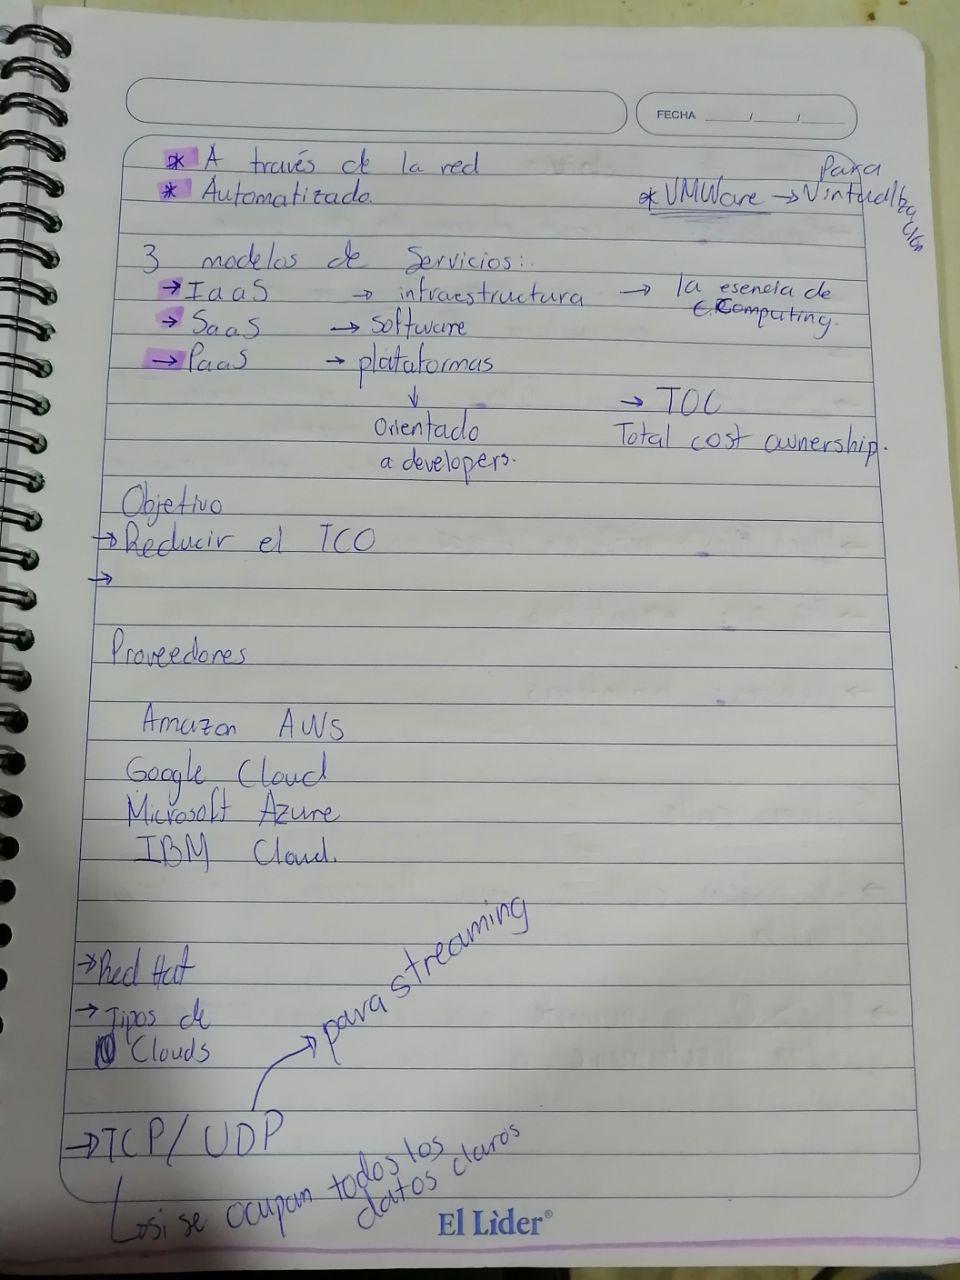 FECHA ____/____/____
* A través de la red
* Automatizado.
* VMWare → Para Virtualización
3 modelos de Servicios:
→ IaaS → infraestructura → la esencia de
C. Computing.
→ SaaS → Software
→ PaaS → plataformas
↓
Orientado
a developers.
→ TOC
Total cost ownership.
Objetivo
→ Reducir el TCO
→
Proveedores
Amazon AWS
Google Cloud
Microsoft Azure
IBM Cloud.
→ Red Hat
→ Tipos de
Clouds
→ TCP/ UDP → para streaming
si se ocupan todos los
datos claros
El Lìder®